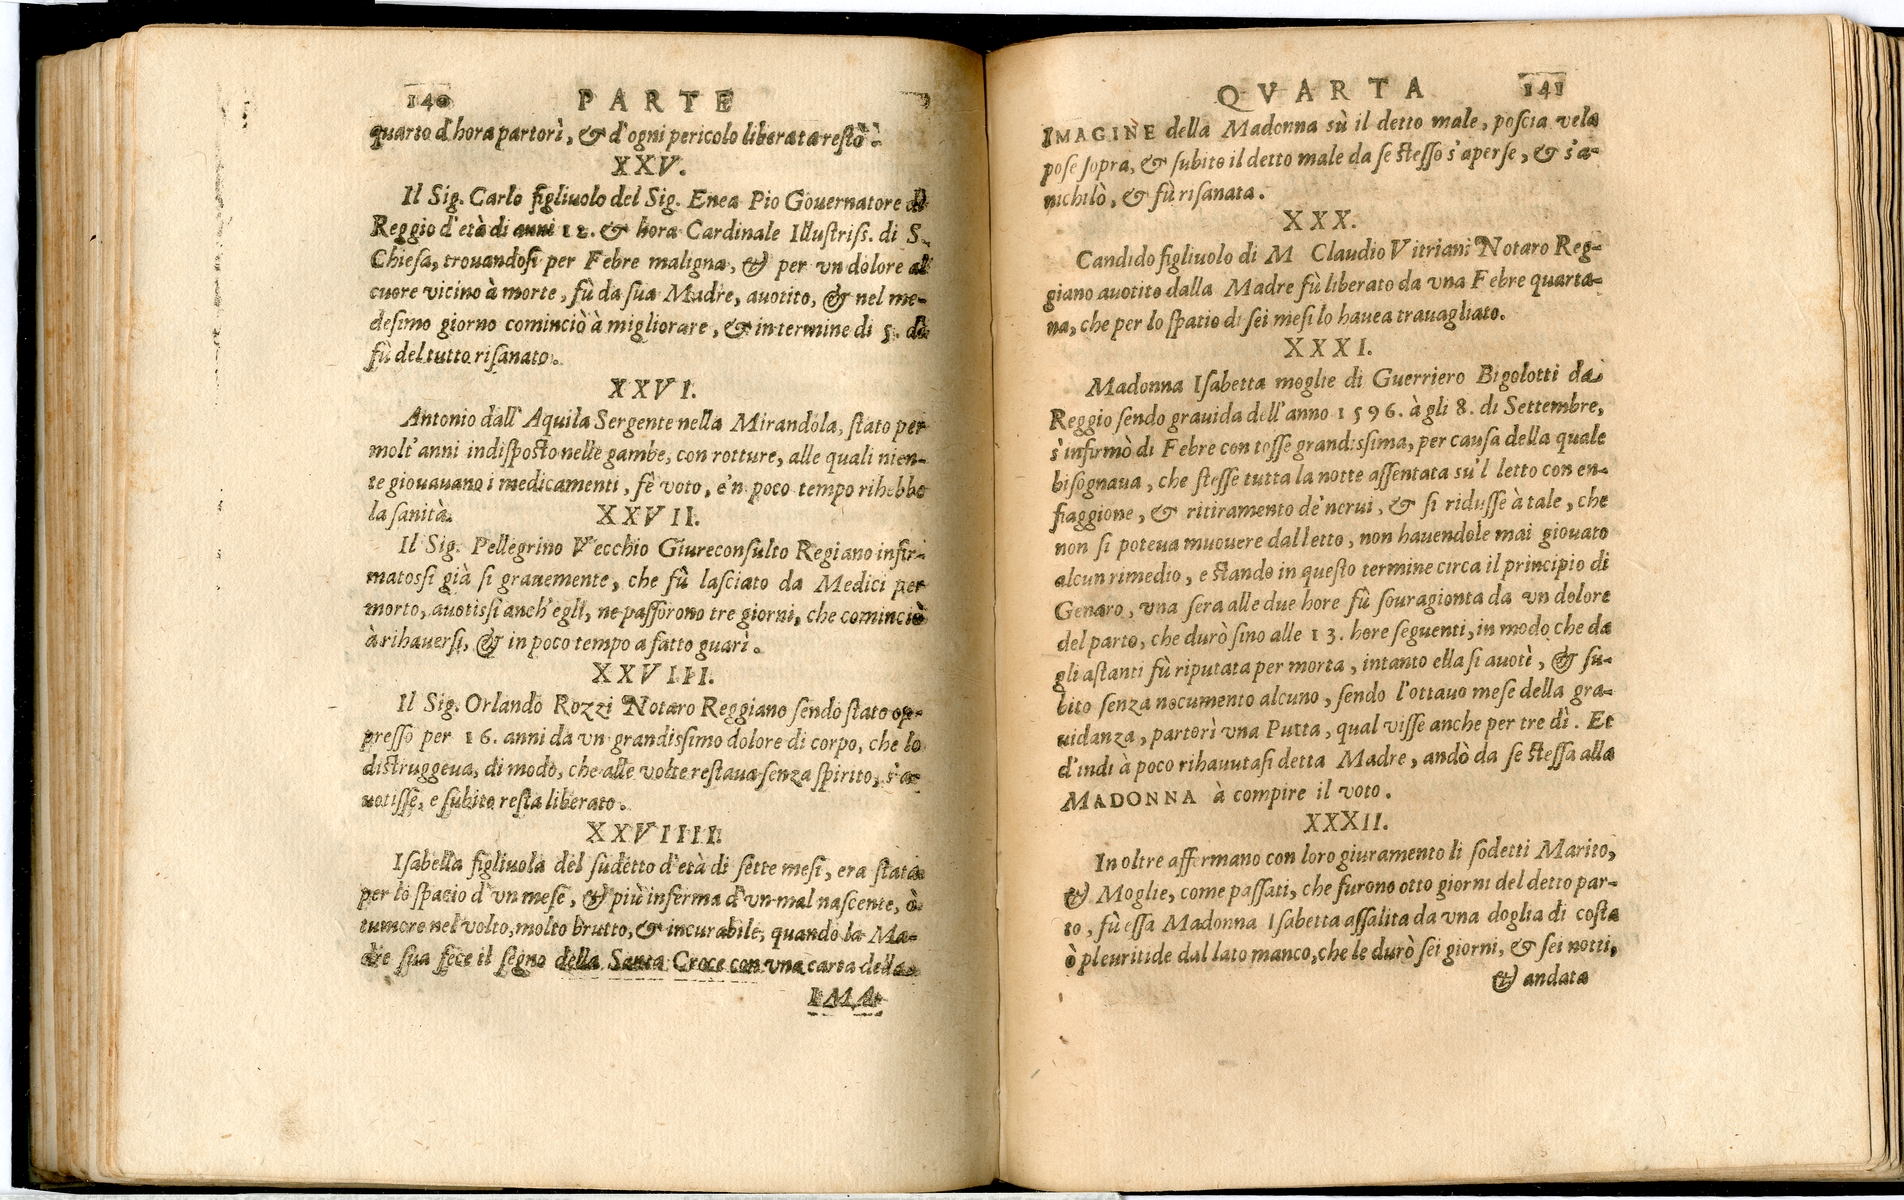 140 PARTE
quarto d'hora partorì, & d'ogni pericolo liberata restò.
XXV.
Il Sig. Carlo figliuolo del Sig. Enea Pio Gouernatore di
Reggio d'età di anni 12. & hora Cardinale Illustriss. di S.
Chiesa, trouandosi per Febre maligna, & per vn dolore al
cuore vicino à morte, fù da sua Madre, auotito, & nel me-
desimo giorno cominciò à migliorare, & in termine di 5. dì
fù del tutto risanato.
XXVI.
Antonio dall' Aquila Sergente nella Mirandola, stato per
molt' anni indisposto nelle gambe, con rotture, alle quali nien-
te giouauano i medicamenti, fè voto, e'n poco tempo rihebbe
la sanità.
XXVII.
Il Sig. Pellegrino Vecchio Giureconsulto Regiano infir-
matossi già si grauemente, che fù lasciato da Medici per
morto, auotissi anch' egli, ne passorono tre giorni, che cominciò
à rihauersi, & in poco tempo a fatto guarì.
XXVIII.
Il Sig. Orlando Rozzi Notaro Reggiano sendo stato op-
presso per 16. anni da vn grandissimo dolore di corpo, che lo
distruggeua, di modo, che alle volte restaua senza spirito, s'a-
uotisse, e subito resta liberato.
XXVIIII.
Isabella figliuola del sudetto d'età di sette mesi, era stata
per lo spacio d'vn mese, & più inferma d'vn mal nascente, ò
tumore nel volto, molto brutto, & incurabile, quando la Ma-
dre sua fece il segno della Santa Croce con vna carta della
IMA-
QVARTA 141
IMAGINE della Madonna sù il detto male, poscia vela
pose sopra, & subito il detto male da se stesso s'aperse, & s'a-
nichilò, & fù risanata.
XXX.
Candido figliuolo di M Claudio Vitriani Notaro Reg-
giano auotito dalla Madre fù liberato da vna Febre quarta-
na, che per lo spatio di sei mesi lo hauea trauagliato.
XXXI.
Madonna Isabetta moglie di Guerriero Bigolotti da
Reggio sendo grauida dell'anno 1596. à gli 8. di Settembre,
s'infirmò di Febre con tosse grandissima, per causa della quale
bisognaua, che stesse tutta la notte assentata su'l letto con en-
fiaggione, & ritiramento de'nerui, & si ridusse à tale, che
non si poteua muouere dal letto, non hauendole mai giouato
alcun rimedio, e stando in questo termine circa il principio di
Genaro, vna sera alle due hore fù souragionta da vn dolore
del parto, che durò sino alle 13. hore seguenti, in modo che da
gli astanti fù riputata per morta, intanto ella si auotì, & su-
bito senza nocumento alcuno, sendo l'ottauo mese della gra-
uidanza, partorì vna Putta, qual visse anche per tre dì. Et
d'indi à poco rihauutasi detta Madre, andò da se stessa alla
MADONNA à compire il voto.
XXXII.
In oltre affermano con loro giuramento li sodetti Marito,
& Moglie, come passati, che furono otto giorni del detto par-
to, fù essa Madonna Isabetta assalita da vna doglia di costa
ò pleuritide dal lato manco, che le durò sei giorni, & sei notti,
& andata